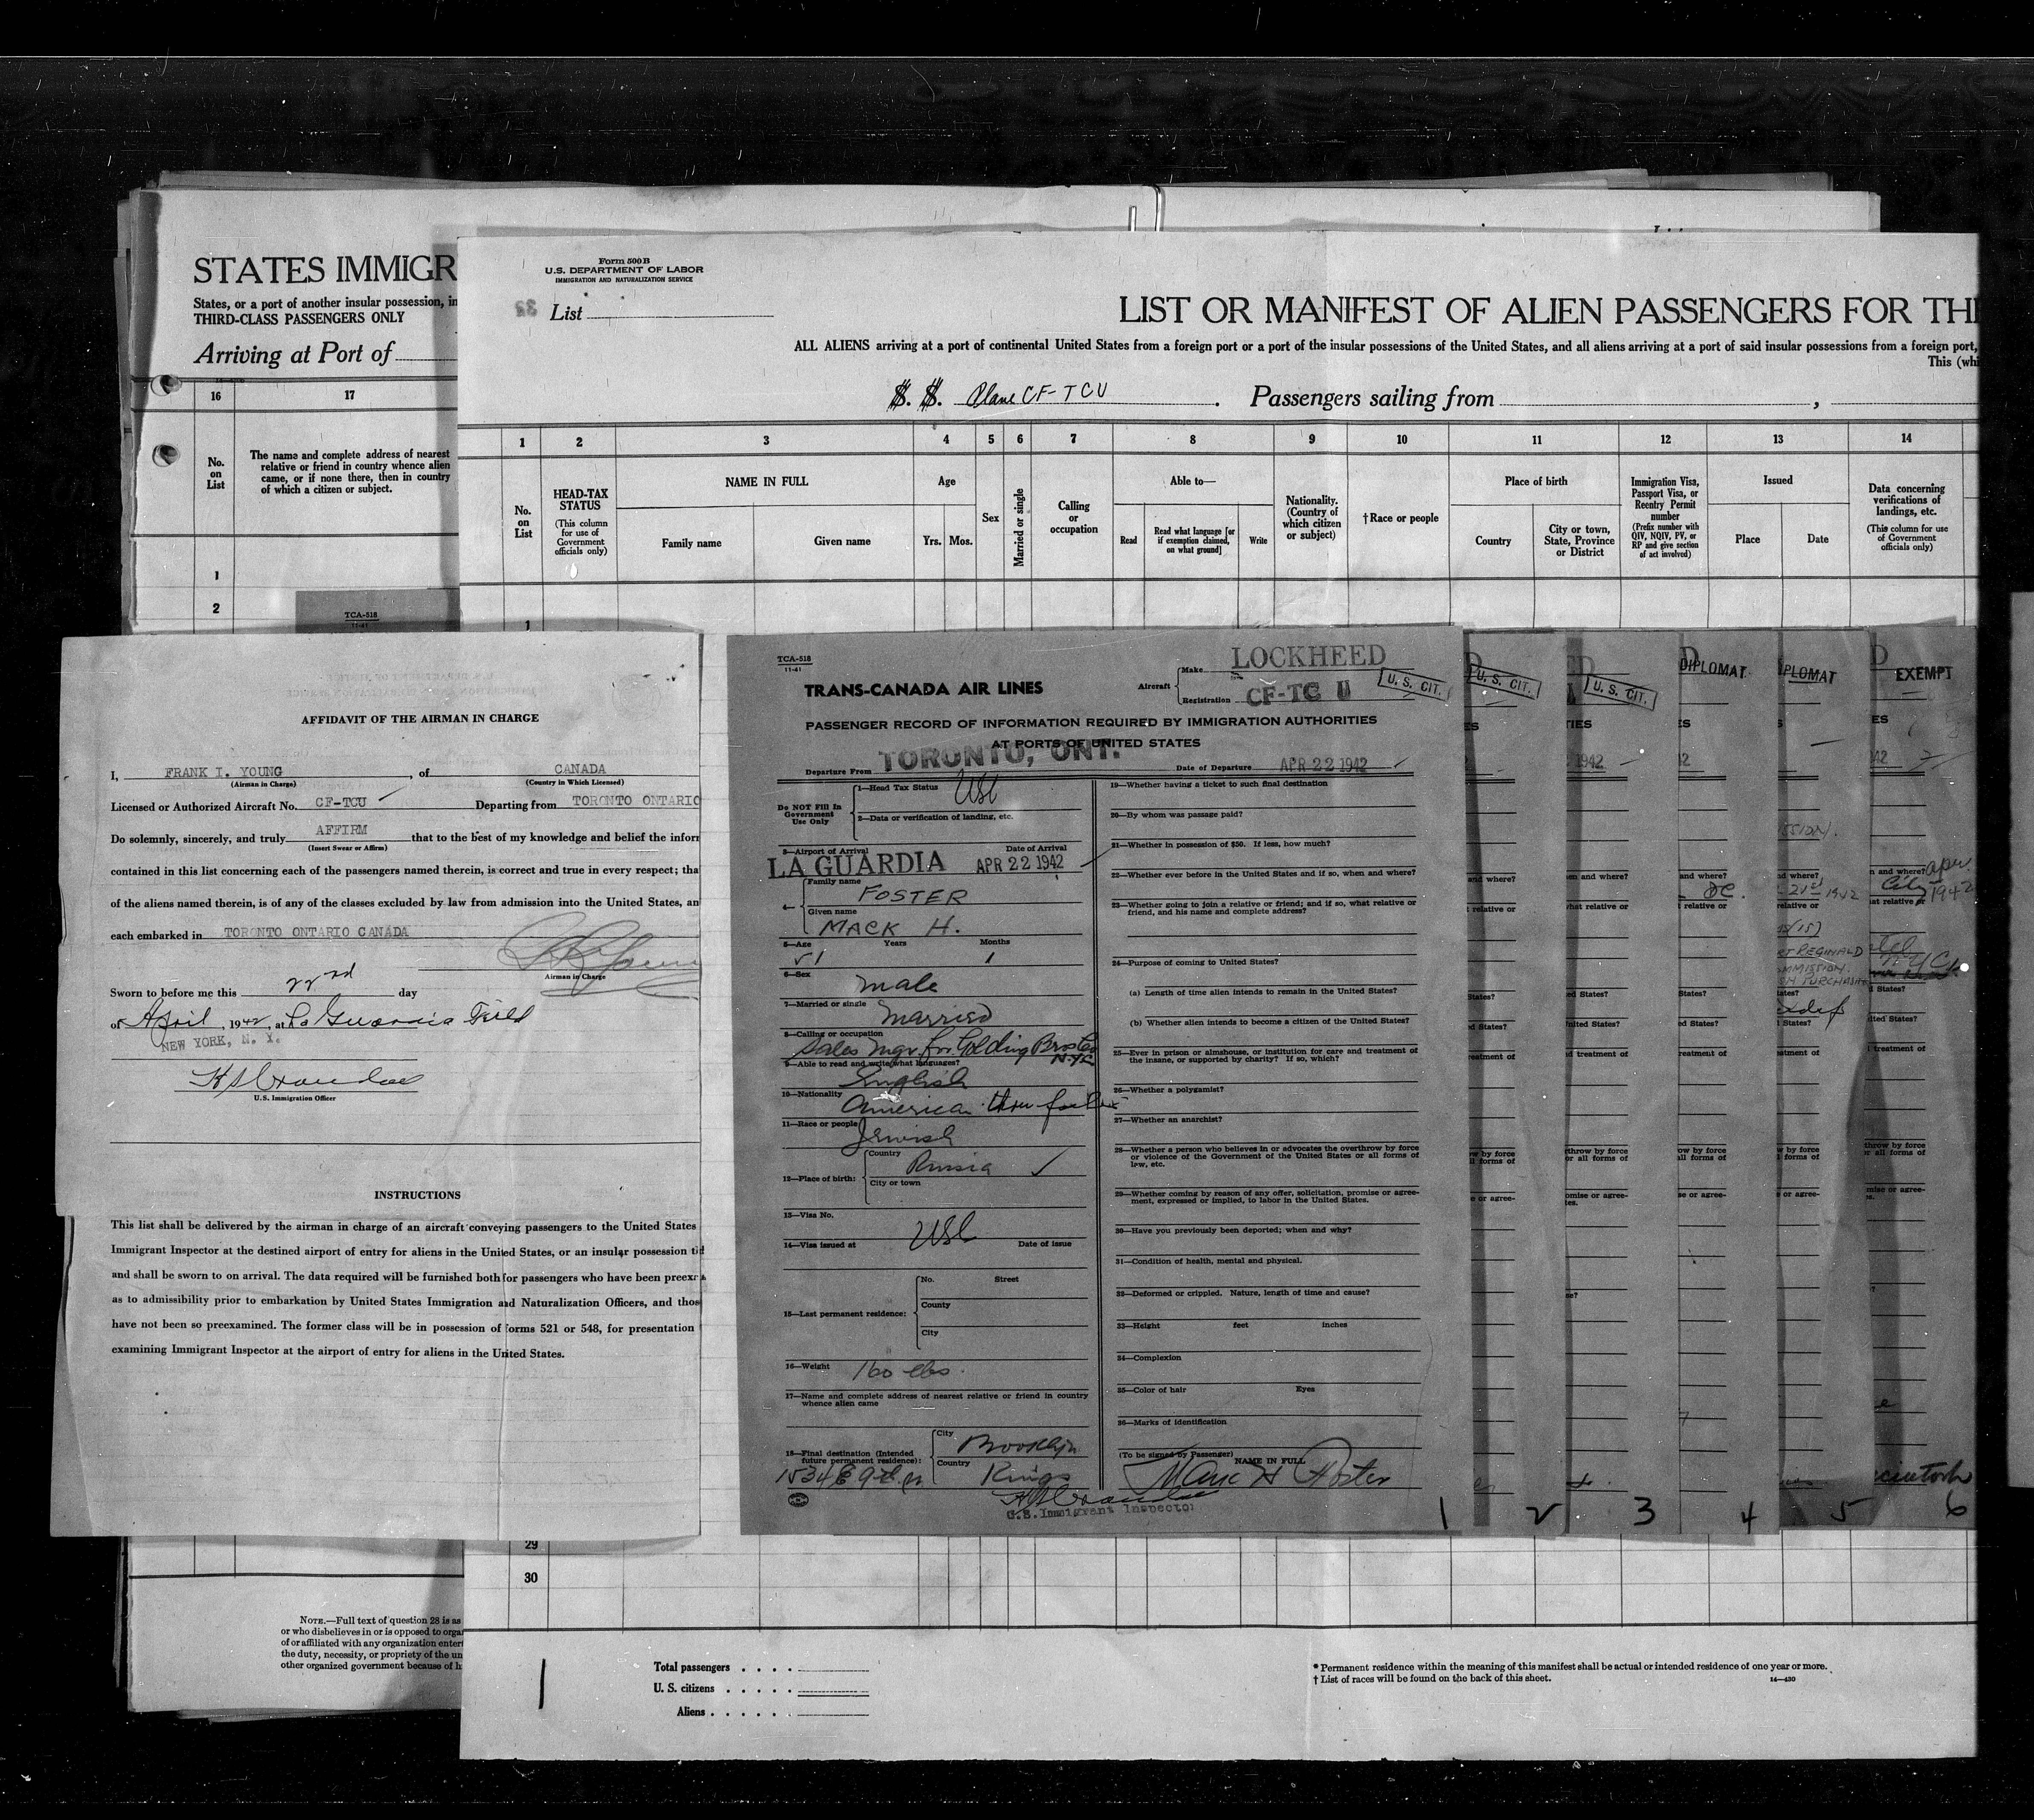 STATES IMMIGR
States, or a port of another insular possession, in
THIRD-CLASS PASSENGERS ONLY
Arriving at Port of
16
17
No.
on
List
The name and complete address of nearest
relative or friend in country whence alien
came, or if none there, then in country
of which a citizen or subject.
1
2
TCA-518
11-41
Form 500B
U.S. DEPARTMENT OF LABOR
IMMIGRATION AND NATURALIZATION SERVICE
List
LIST OR MANIFEST OF ALIEN PASSENGERS FOR TH
ALL ALIENS arriving at a port of continental United States from a foreign port or a port of the insular possessions of the United States, and all aliens arriving at a port of said insular possessions from a foreign port,
This (whi
S. S. Plane CF-TCU . Passengers sailing from ,
1 2 3 4 5 6 7 8 9 10 11 12 13 14
No.
on
List
HEAD-TAX
STATUS
(This column
for use of
Government
officials only)
NAME IN FULL
Family name
Given name
Age
Yrs.
Mos.
Sex
Married or single
Calling
or
occupation
Able to—
Read
Read what language [or
if exemption claimed,
on what ground]
Write
Nationality.
(Country of
which citizen
or subject)
†Race or people
Place of birth
Country
City or town,
State, Province
or District
Immigration Visa,
Passport Visa, or
Reentry Permit
number
(Prefix number with
QIV, NQIV, PV, or
RP and give section
of act involved)
Issued
Place
Date
Data concerning
verifications of
landings, etc.
(This column for use
of Government
officials only)
1
AFFIDAVIT OF THE AIRMAN IN CHARGE
I, FRANK I. YOUNG , of CANADA
(Airman in Charge) (Country in Which Licensed)
Licensed or Authorized Aircraft No. CF-TCU Departing from TORONTO ONTARIO
Do solemnly, sincerely, and truly AFFIRM that to the best of my knowledge and belief the infor
(Insert Swear or Affirm)
contained in this list concerning each of the passengers named therein, is correct and true in every respect; tha
of the aliens named therein, is of any of the classes excluded by law from admission into the United States, an
each embarked in TORONTO ONTARIO CANADA
Airman in Charge
Sworn to before me this 22nd day
of April , 1942, at La Guardia Field
NEW YORK, N. Y.
U.S. Immigration Officer
INSTRUCTIONS
This list shall be delivered by the airman in charge of an aircraft conveying passengers to the United States
Immigrant Inspector at the destined airport of entry for aliens in the United States, or an insular possession
and shall be sworn to on arrival. The data required will be furnished both for passengers who have been preex
as to admissibility prior to embarkation by United States Immigration and Naturalization Officers, and thos
have not been so preexamined. The former class will be in possession of forms 521 or 548, for presentation
examining Immigrant Inspector at the airport of entry for aliens in the United States.
TCA-518
11-41
TRANS-CANADA AIR LINES
Aircraft
Make LOCKHEED
Registration CF-TC U
U. S. CIT.
PASSENGER RECORD OF INFORMATION REQUIRED BY IMMIGRATION AUTHORITIES
AT PORTS OF UNITED STATES
Departure From TORONTO, ONT. Date of Departure APR 22 1942
Do NOT Fill In
Government
Use Only
1—Head Tax Status USC
2—Data or verification of landing, etc.
3—Airport of Arrival Date of Arrival
LA GUARDIA APR 22 1942
4—
Family name
FOSTER
Given name
MACK H.
5—Age Years Months
51
6—Sex
male
7—Married or single
Married
8—Calling or occupation
Sales Mgr for Golding Bros Co
N.Y.C
9—Able to read and write what languages?
English
10—Nationality
American thru father
11—Race or people
Jewish
12—Place of birth:
Country
Russia
City or town
13—Visa No.
USC
14—Visa issued at Date of issue
15—Last permanent residence:
No. Street
County
City
16—Weight 160 lbs.
17—Name and complete address of nearest relative or friend in country
whence alien came
18—Final destination (Intended
future permanent residence):
City Brooklyn
Country Kings
1534 E 9th
U.S. Immigrant Inspector
19—Whether having a ticket to such final destination
20—By whom was passage paid?
21—Whether in possession of $50. If less, how much?
22—Whether ever before in the United States and if so, when and where?
23—Whether going to join a relative or friend; and if so, what relative or
friend, and his name and complete address?
24—Purpose of coming to United States?
(a) Length of time alien intends to remain in the United States?
(b) Whether alien intends to become a citizen of the United States?
25—Ever in prison or almshouse, or institution for care and treatment of
the insane, or supported by charity? If so, which?
26—Whether a polygamist?
27—Whether an anarchist?
28—Whether a person who believes in or advocates the overthrow by force
or violence of the Government of the United States or all forms of
law, etc.
29—Whether coming by reason of any offer, solicitation, promise or agree-
ment, expressed or implied, to labor in the United States.
30—Have you previously been deported; when and why?
31—Condition of health, mental and physical.
32—Deformed or crippled. Nature, length of time and cause?
33—Height feet inches
34—Complexion
35—Color of hair Eyes
36—Marks of identification
(To be signed by Passenger)
NAME IN FULL
Mack H Foster
U. S. CIT.
U. S. CIT.
DIPLOMAT
PLOMAT
EXEMPT
1 2 3 4 5 6
29
30
NOTE.—Full text of question 28 is as
or who disbelieves in or is opposed to orga
of or affiliated with any organization entert
the duty, necessity, or propriety of the un
other organized government because of h
Total passengers . . . .
U. S. citizens . . . . .
Aliens . . . . . .
* Permanent residence within the meaning of this manifest shall be actual or intended residence of one year or more.
† List of races will be found on the back of this sheet.
14—430